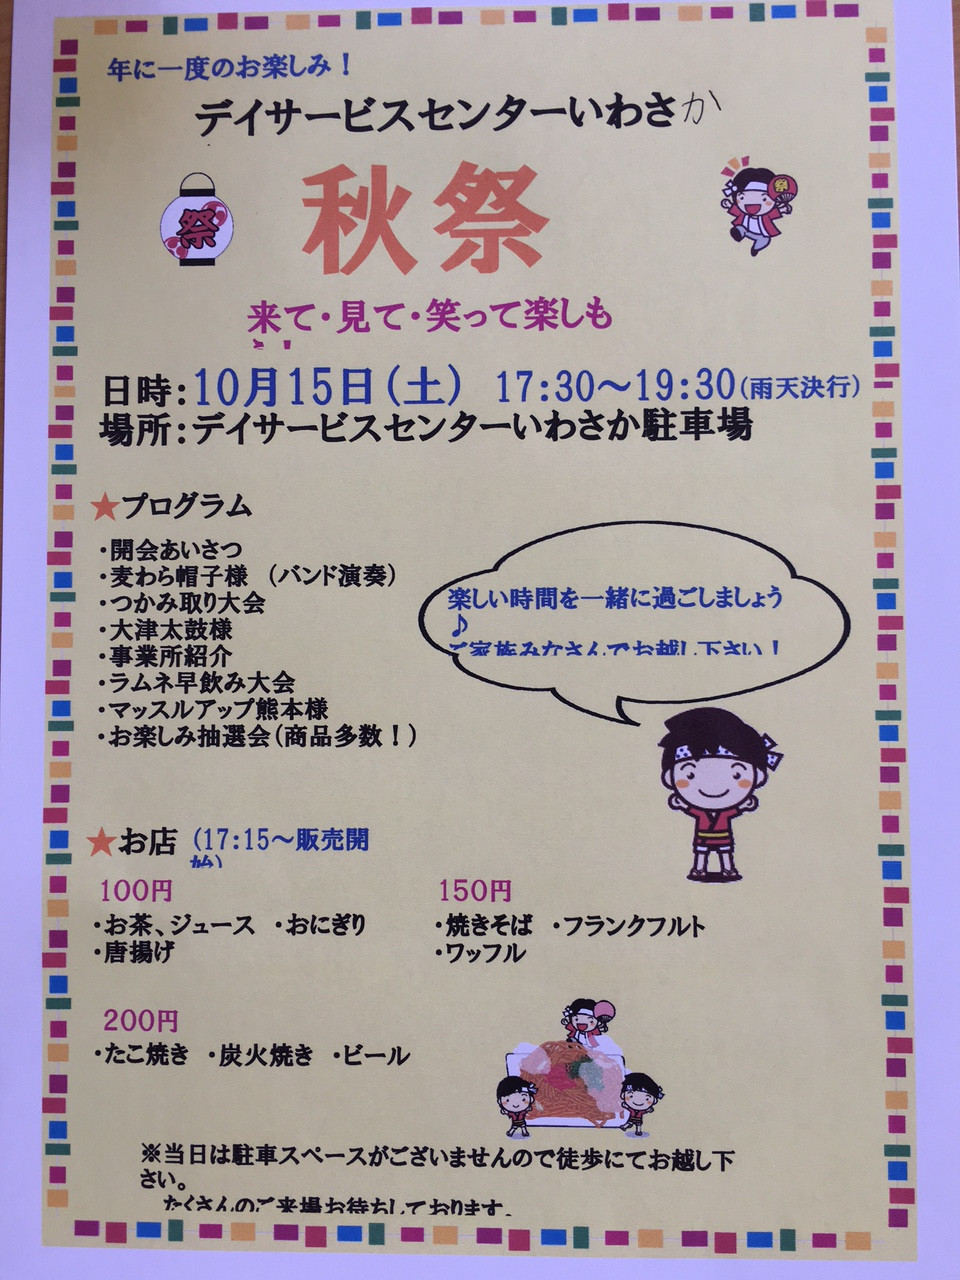 年に一度のお楽しみ！
デイサービスセンターいわさか
祭
秋祭
祭
来て・見て・笑って楽しも
日時：10月15日(土) 17:30～19:30(雨天決行)
場所：デイサービスセンターいわさか駐車場
★プログラム
・開会あいさつ
・麦わら帽子様 (バンド演奏)
・つかみ取り大会
・大津太鼓様
・事業所紹介
・ラムネ早飲み大会
・マッスルアップ熊本様
・お楽しみ抽選会(商品多数！)
楽しい時間を一緒に過ごしましょう
♪
ご家族みなさんでお越し下さい！
★お店 (17:15～販売開
始)
100円
・お茶、ジュース ・おにぎり
・唐揚げ
150円
・焼きそば ・フランクフルト
・ワッフル
200円
・たこ焼き ・炭火焼き ・ビール
※当日は駐車スペースがございませんので徒歩にてお越し下
さい。
たくさんのご来場お待ちしております。